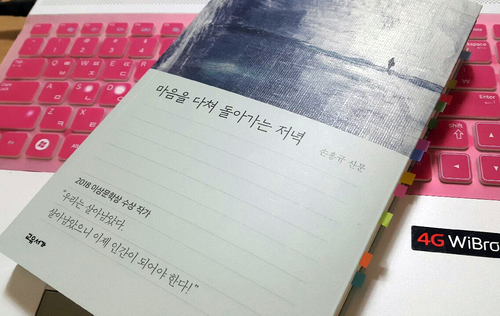 마음을 다쳐 돌아가는 저녁
손홍규 산문
2018 이상문학상 수상 작가
"우리는 살아남았다.
살아남았으니 이제 인간이 되어야 한다!"
교유서가
4G WiBro
Enter
Shift